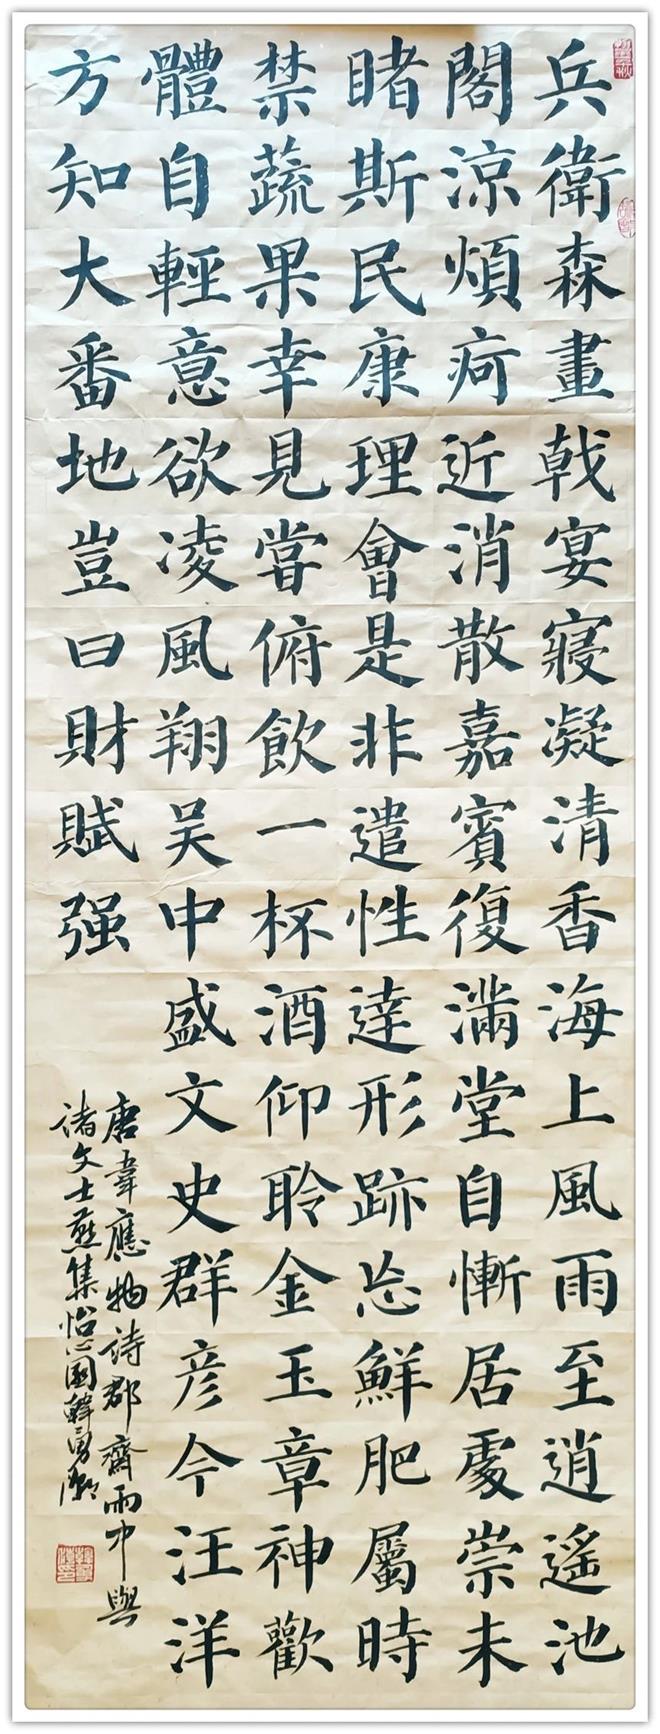 兵衛森畫戟宴寢凝清香海上風雨至逍遙池
閣涼煩疴近消散嘉賓復滿堂自慚居處崇未
睹斯民康理會是非遣性達形跡忘鮮肥屬時
禁蔬果幸見嘗俯飲一杯酒仰聆金玉章神歡
體自輕意欲凌風翔吳中盛文史群彥今汪洋
方知大番地豈曰財賦强
唐韋應物詩郡齋雨中與
諸文士燕集怡心園韓勇